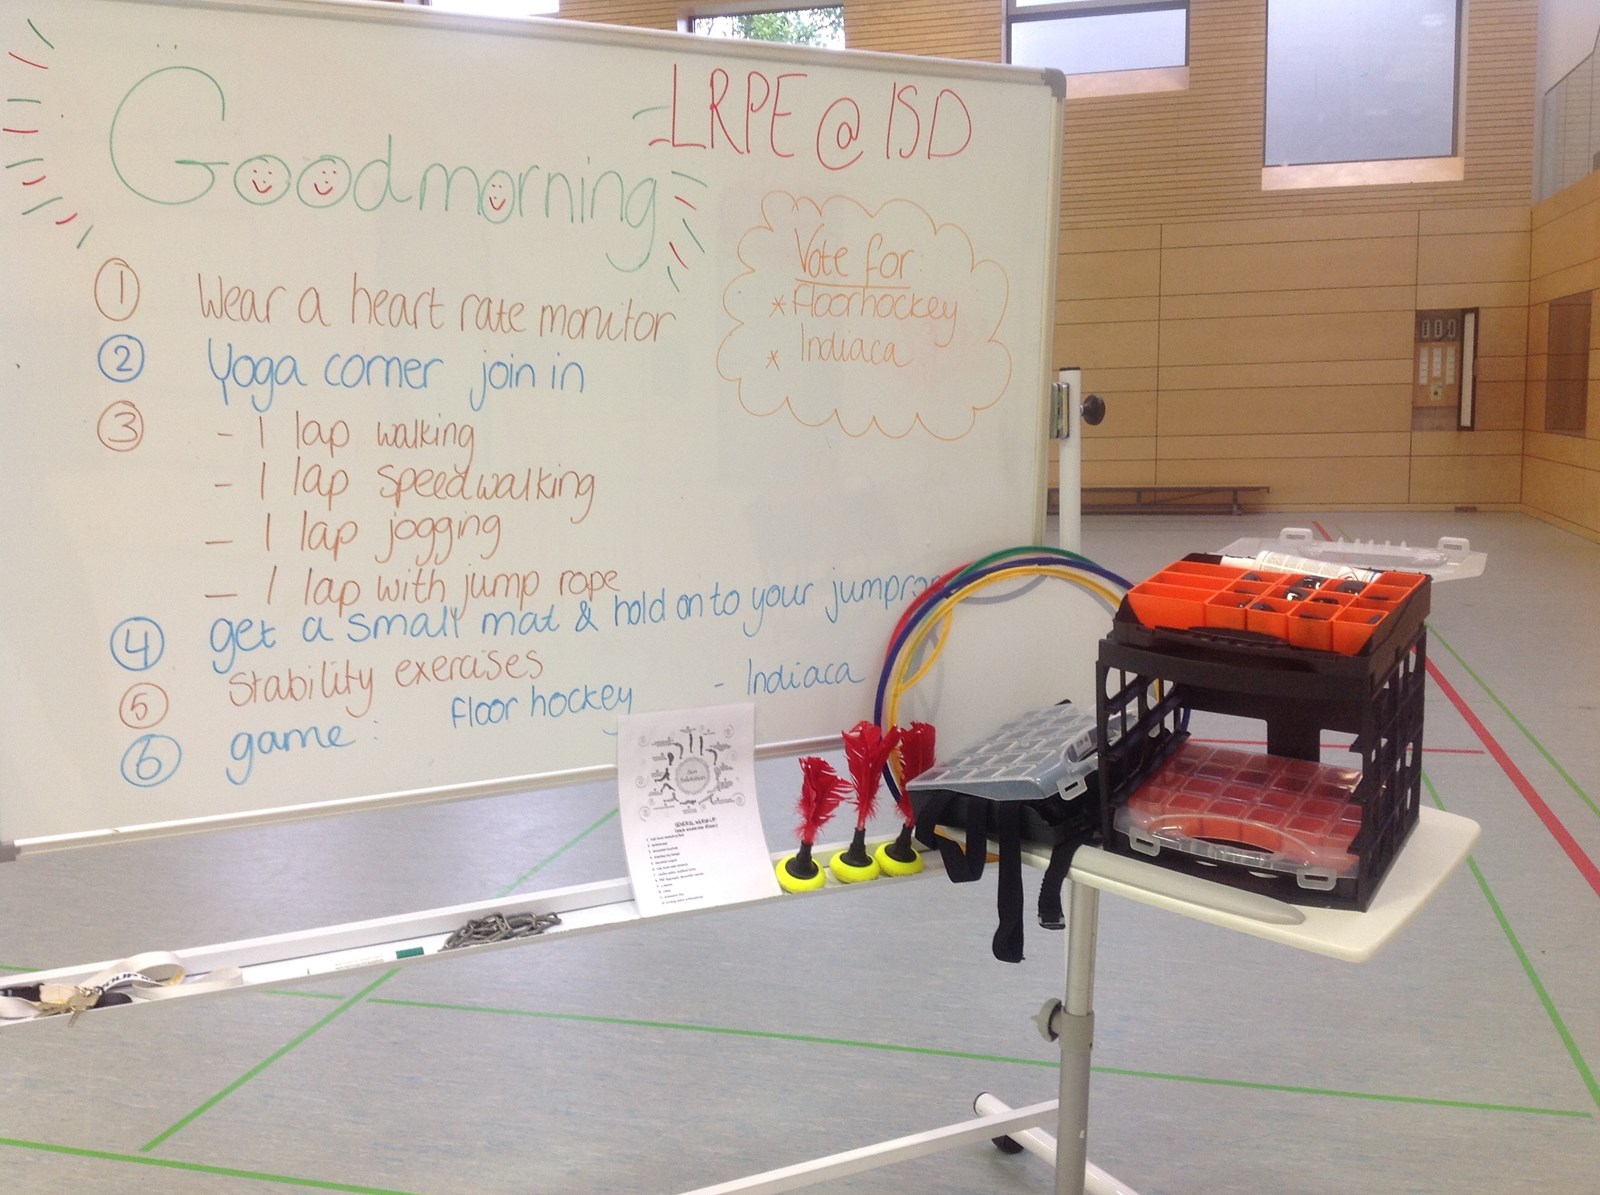 LRPE @ ISD
Good morning
Vote for
* floorhockey
* Indiaca
1 Wear a heart rate monitor
2 Yoga corner join in
3 - 1 lap walking
- 1 lap speedwalking
- 1 lap jogging
- 1 lap with jump rope
4 get a small mat & hold on to your jumprope
5 Stability exercises
6 game: floor hockey - Indiaca
Sun Salutation
GENERAL WARM-UP